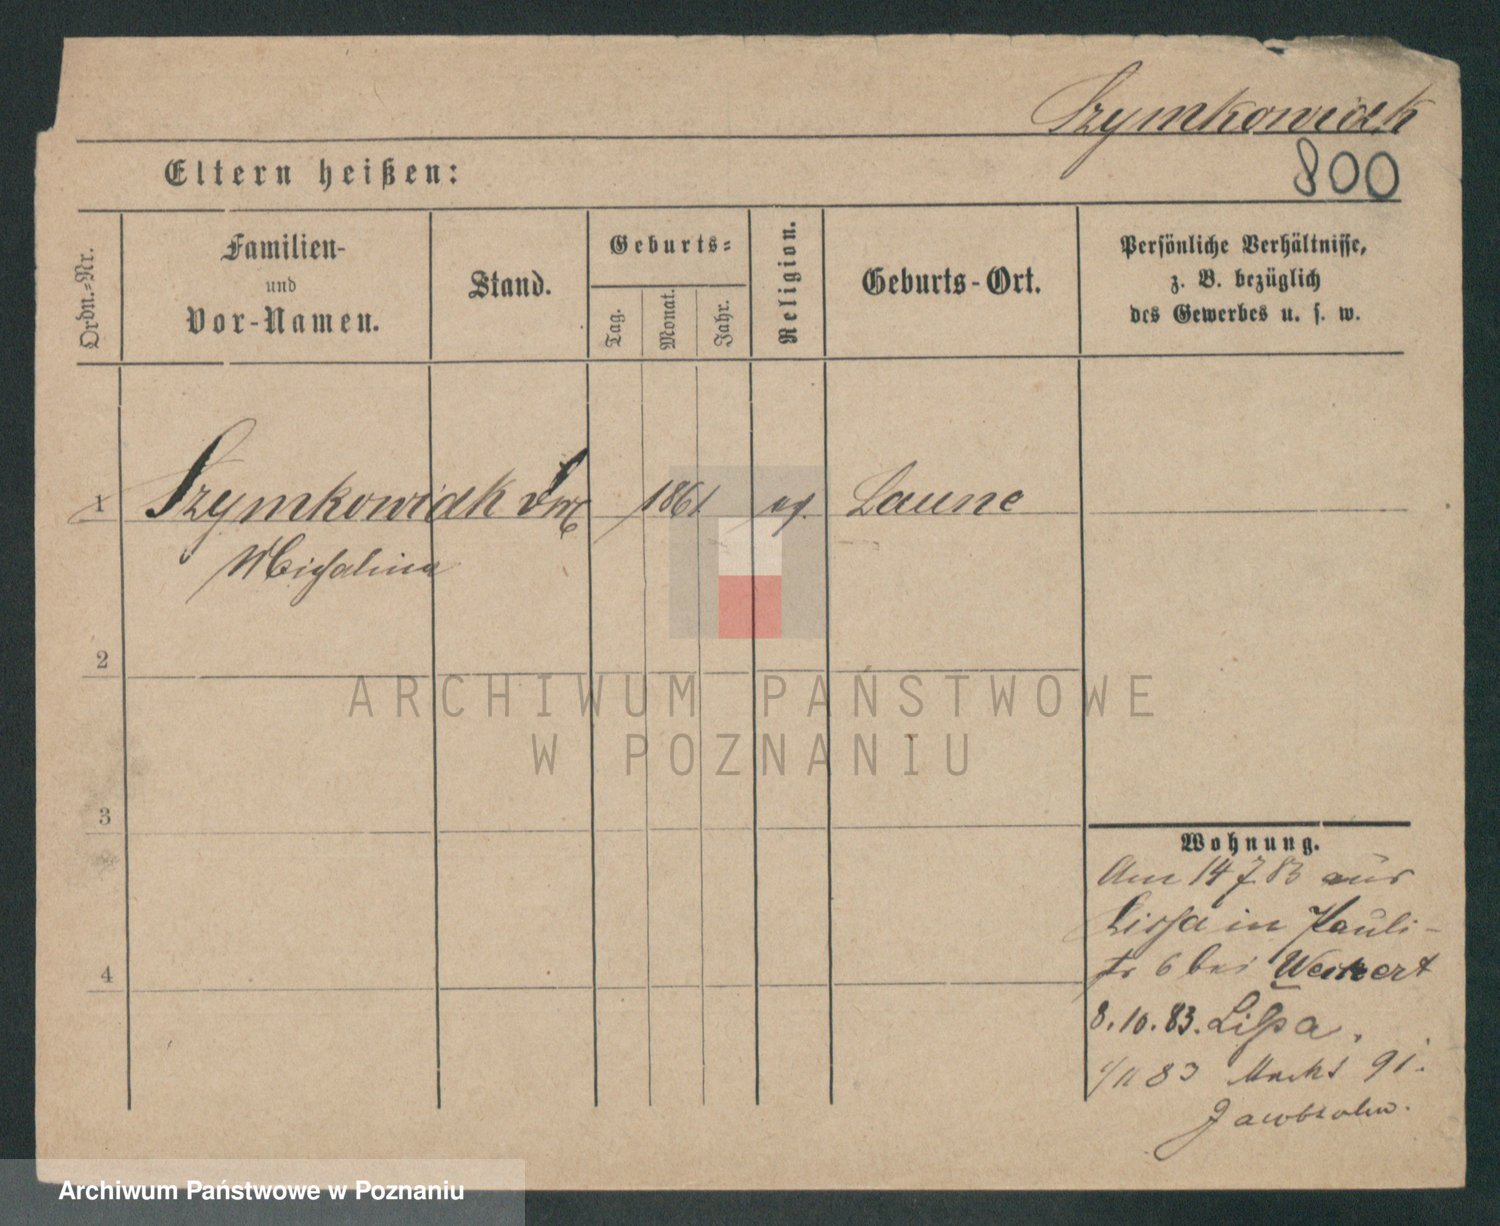 Szymkowiak
800
Eltern heißen:
Ordn.-Nr.
Familien-
und
Vor-Namen.
Stand.
Geburts-
Tag.
Monat.
Jahr.
Religion.
Geburts-Ort.
Persönliche Verhältnisse,
z. B. bezüglich
des Gewerbes u. s. w.
1 Szymkowiak 1861 Laune
Michalina
2
ARCHIWUM PAŃSTWOWE
W POZNANIU
3
4
Wohnung.
Am 14 7 83 aus
Lissa in Pauli-
6 bei
8.10.83. Lissa.
83 Markt 91.
Jacobsohn.
Archiwum Państwowe w Poznaniu